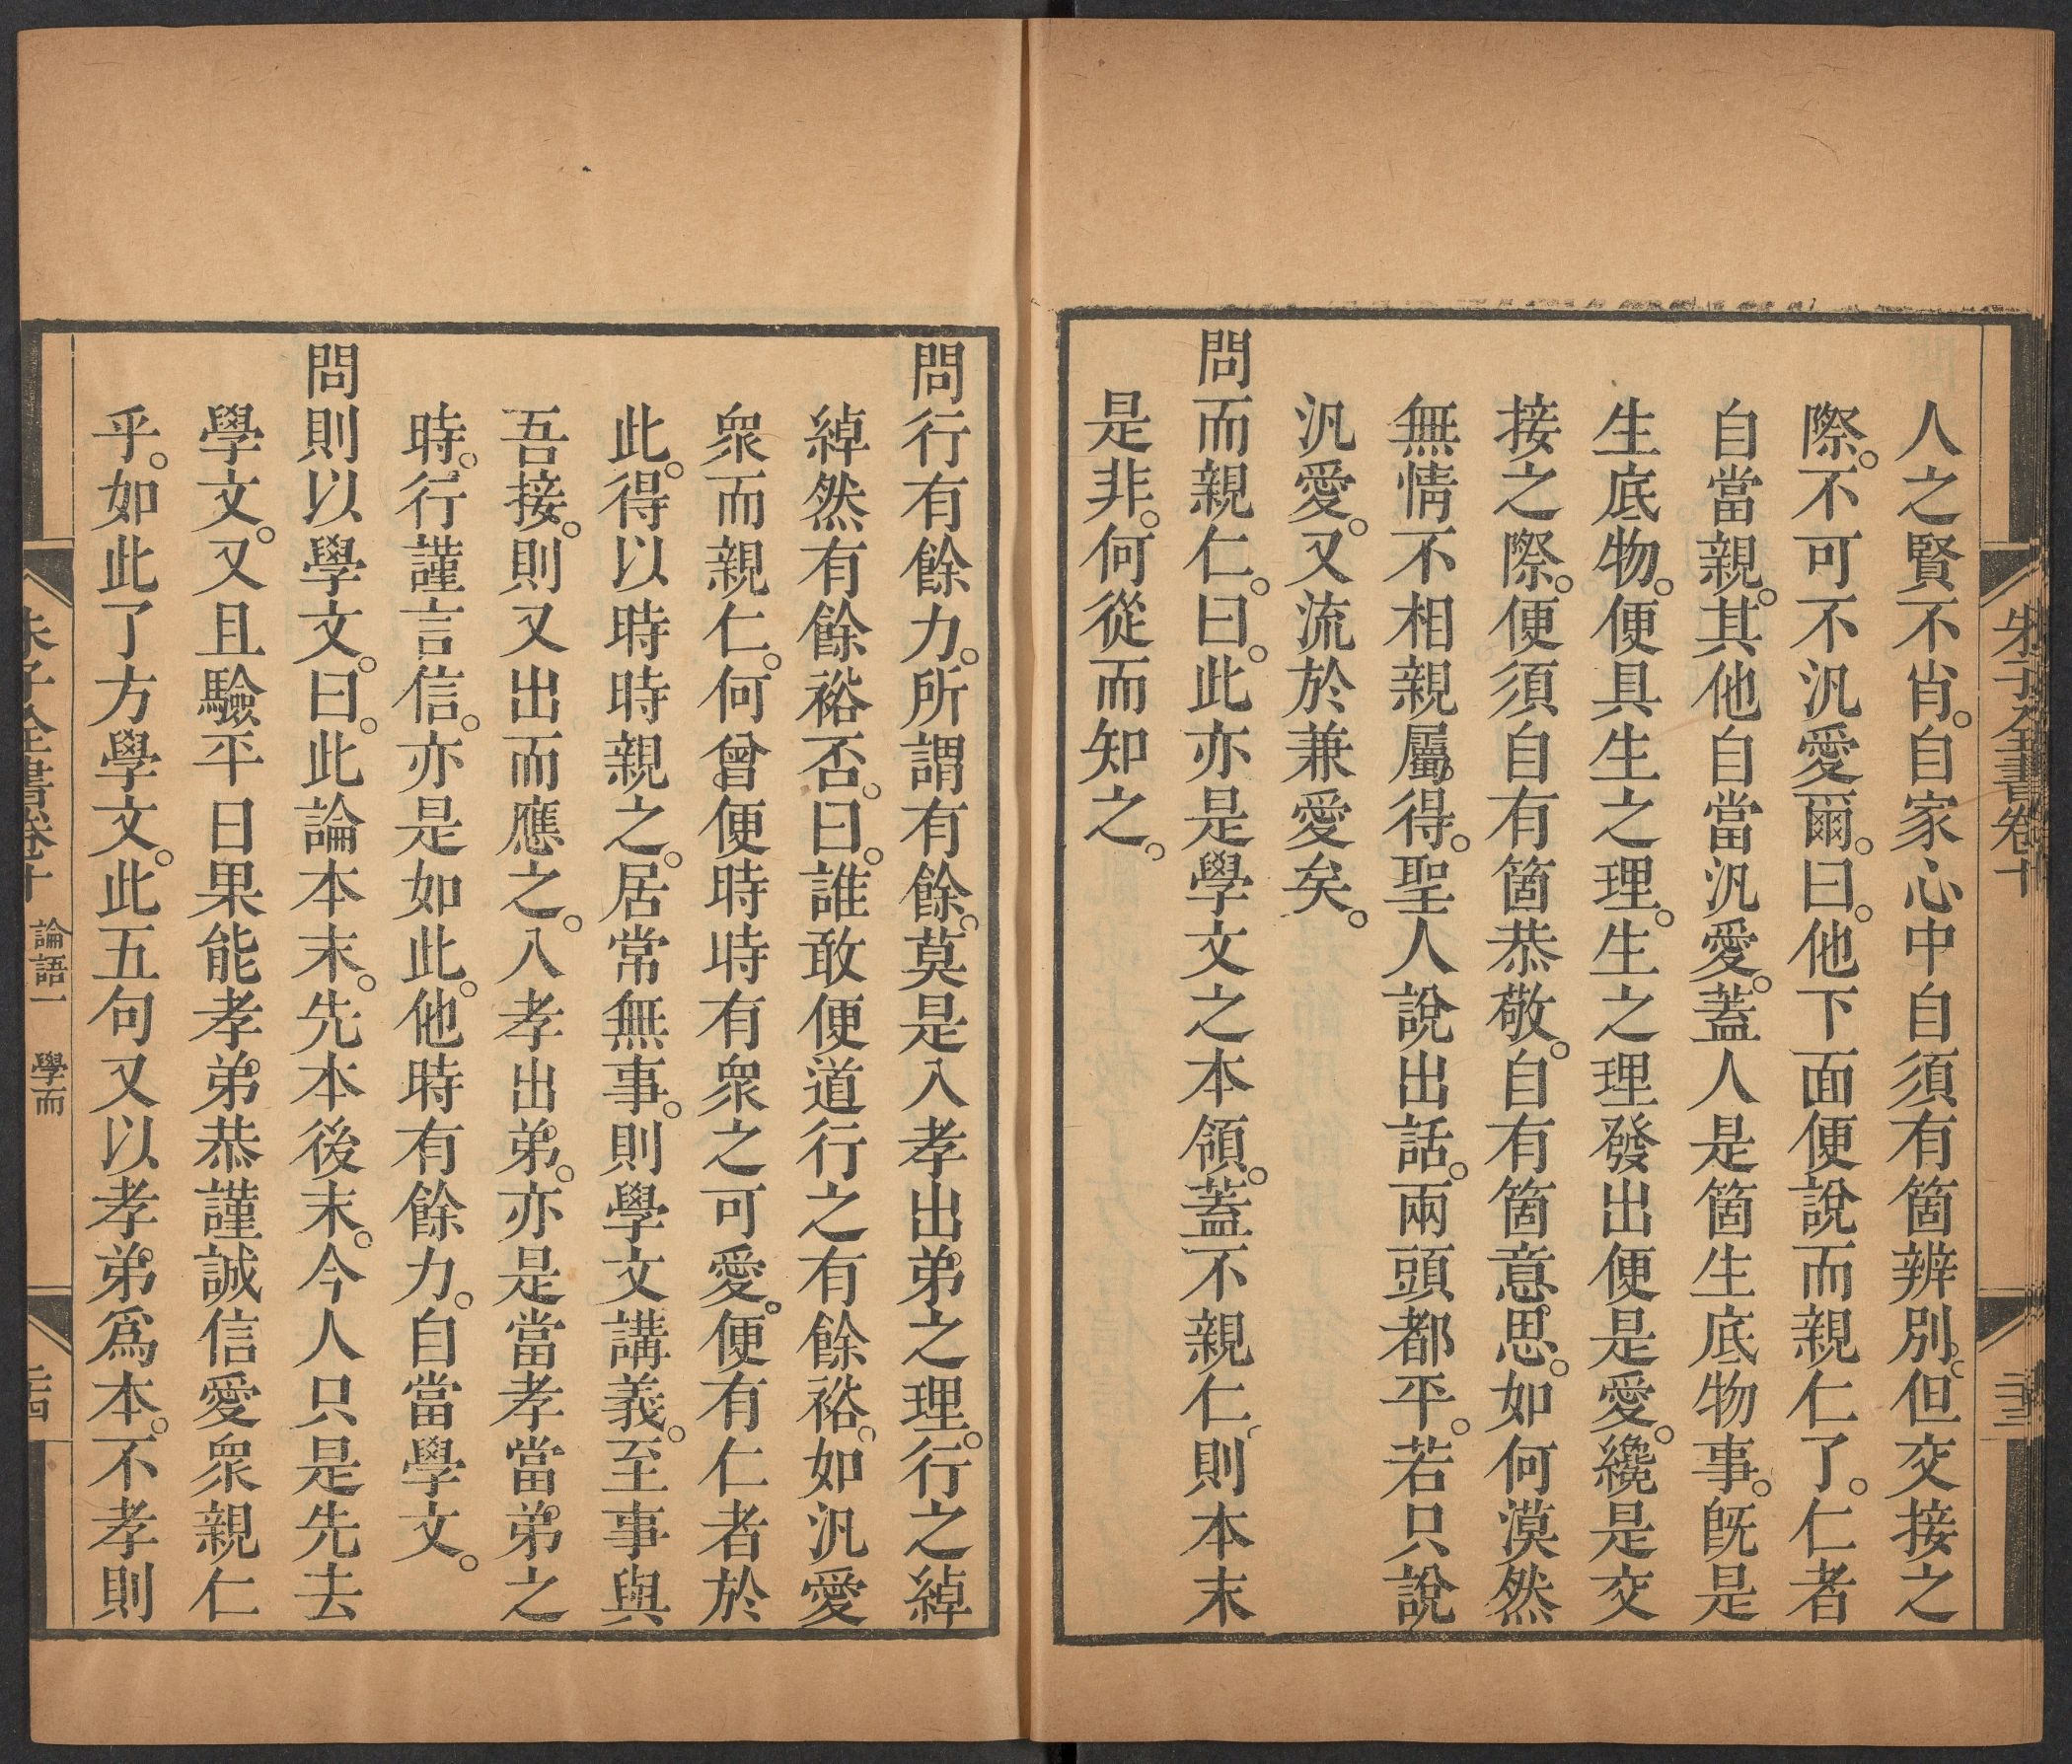 朱子全書卷十
二十三
人之賢不肖。自家心中自須有箇辨別。但交接之
際。不可不汎愛爾。曰。他下面便說而親仁了。仁者
自當親。其他自當汎愛。蓋人是箇生底物事。旣是
生底物。便具生之理。生之理發出便是愛。纔是交
接之際。便須自有箇恭敬。自有箇意思。如何漠然
無情不相親屬得。聖人說出話。兩頭都平。若只說
汎愛。又流於兼愛矣。
問而親仁。曰。此亦是學文之本領。蓋不親仁。則本末
是非。何從而知之。
問行有餘力。所謂有餘。莫是入孝出弟之理。行之綽
綽然有餘裕否。曰。誰敢便道行之有餘裕。如汎愛
衆而親仁。何曾便時時有衆之可愛。便有仁者於
此。得以時時親之。居常無事。則學文講義。至事與
吾接。則又出而應之。入孝出弟。亦是當孝當弟之
時。行謹言信。亦是如此。他時有餘力。自當學文。
問則以學文。曰。此論本末。先本後末。今人只是先去
學文。又且驗平日果能孝弟恭謹誠信愛衆親仁
乎。如此了方學文。此五句又以孝弟爲本。不孝則
朱子全書卷十 論語一 學而
二十四